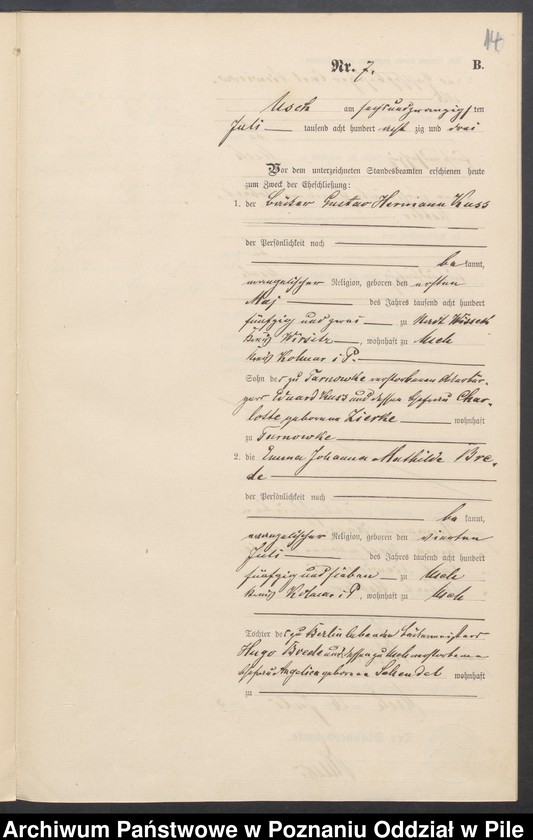 14
Nr. 7. B.
Usch am sechsundzwanzigsten
Juli tausend acht hundert acht zig und drei
Vor dem unterzeichneten Standesbeamten erschienen heute
zum Zweck der Eheschließung:
1. der Gustav Hermann Kuss
der Persönlichkeit nach
be kannt,
evangelischer Religion, geboren den ersten
Mai des Jahres tausend acht hundert
fünfzig und zwei zu Stadt Wissek
Kreis Wirsitz, wohnhaft zu Usch
Kreis Kolmar i P.
Sohn des zu Tarnowke verstorbenen
Eduard Kuss und dessen Ehefrau Char-
lotte geborene Zierke wohnhaft
zu Tarnowke
2. die Emma Johanna Mathilde Bre-
de
der Persönlichkeit nach
be kannt,
evangelischer Religion, geboren den vierten
Juli des Jahres tausend acht hundert
fünfzig und sieben zu Usch
Kreis Kolmar i P., wohnhaft zu Usch
Tochter des zu Berlin lebenden
Hugo Brede und dessen zu Usch verstorbene
Ehefrau Angelica geborene Schendel wohnhaft
zu
Archiwum Państwowe w Poznaniu Oddział w Pile